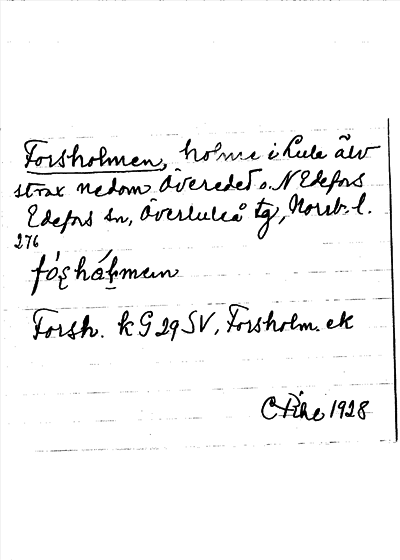 Forsholmen, holme i Lule älv
strax nedom Överedet o. N Edefors
Edefors sn, Överluleå tg, Norrb. l.
276
Forsh. k G 29 SV, Forsholm. ek
1928